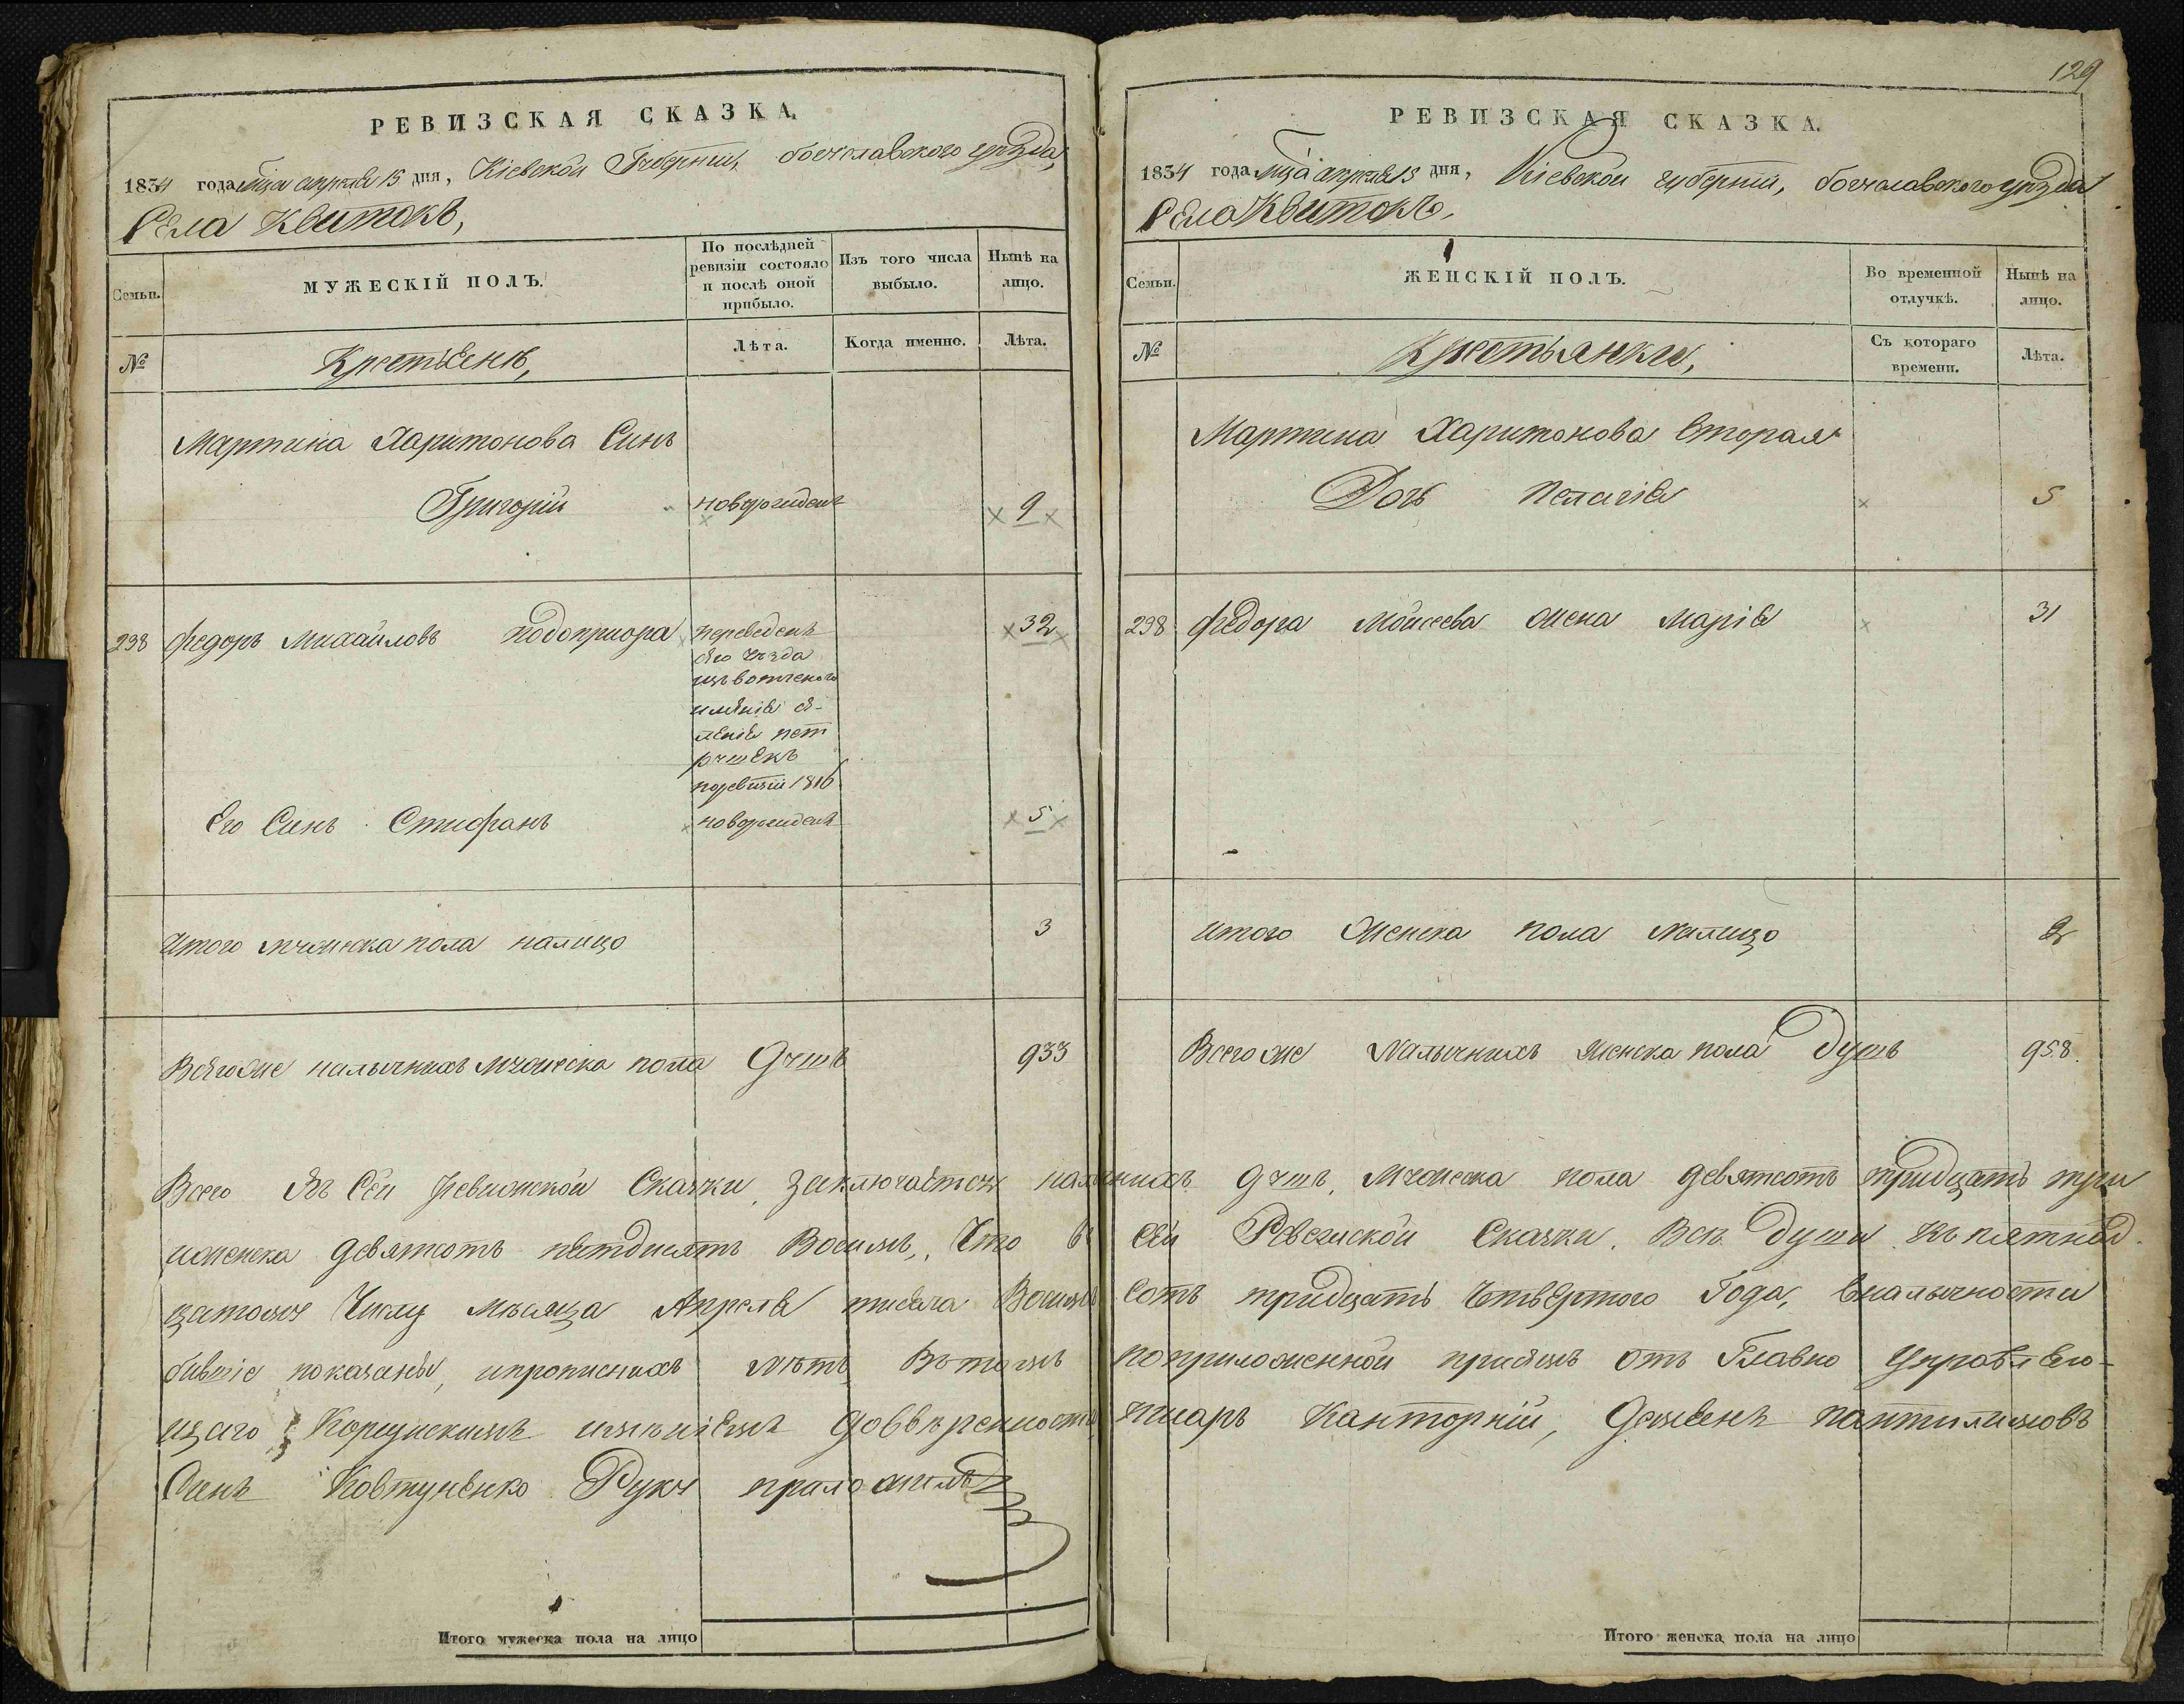 РЕВИЗСКАЯ СКАЗКА.
1834 года мца апреля 15 дня, Кіевской Губерніи, богуславского уезда,
Села Квитокъ,
Семьи.
МУЖЕСКІЙ ПОЛЪ.
По послѣдней ревизіи состояло и послѣ оной прибыло.
Изъ того числа выбыло.
Нынѣ на лицо.
№
Крестьене,
Лѣта.
Когда именно.
Лѣта.
Мартина Харитонова Синъ
Григорій новорожденъ 9
298 Федоръ Михайловъ подопригора переведенъ 32
сего уезда
изъ вотченого
именія се-
ленія пет
рушекъ
поревизіи 1816
Его Синъ Стифанъ новорожденъ 5
Итого мужеска пола налицо 3
Всегоже наличнихъ мужеска пола душъ 933
129
РЕВИЗСКАЯ СКАЗКА.
1834 года мца апреля 15 дня, Кіевской губерніи, богуславского уезда
Села Квитокъ,
Семьи.
ЖЕНСКІЙ ПОЛЪ.
Во временной отлучкѣ.
Нынѣ на лицо.
№
Крестьянки,
Съ котораго времени.
Лѣта.
Мартина Харитонова вторая
Дочь пелагія 5
298 Федора Моисеева жена Марія 31
итого женска пола налицо 2
Всего же наличнихъ женска пола Душъ 958.
Всего въ Сей ревизской Сказки, заключается наличнихъ душъ, мужеска пола девятсотъ тридцать три
иженска девятсотъ петдисятъ Восимъ, Что въ Сей Ревизской Сказки. Все Души къ пятнад-
цатому Числу месяца Апреля тисяча Восимъ Сотъ тридцать Четвертого Года, вналичности
бившіе показаны, ипрописнихъ нетъ Вътомъ поприложенной присяги отъ Главно управляю-
щаго Корсунскимъ именіемъ доверенности писарь Канторній, Демянъ пантилимовъ
Синъ Ковтуненко Руку приложилъ
Итого мужеска пола на лицо
Итого женска пола на лицо